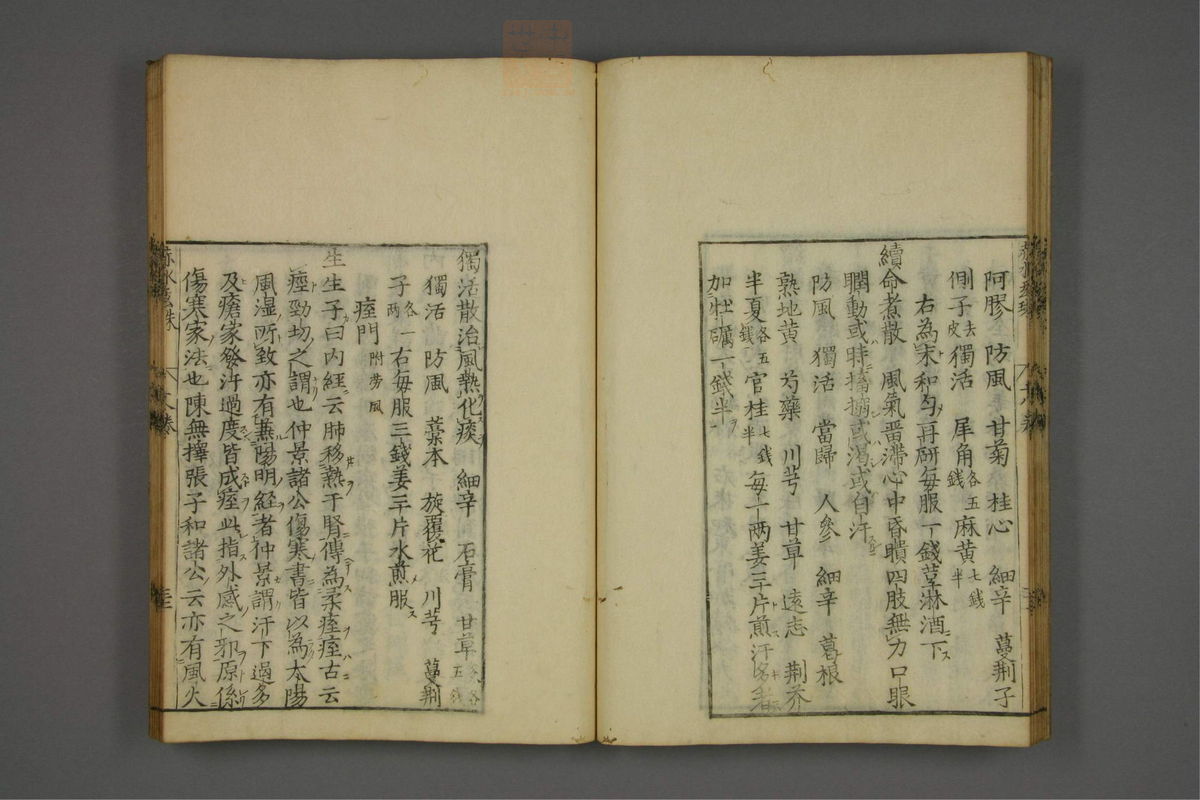 阿膠 防風 甘菊 桂心 細辛 蔓荆子
側子去皮 獨活 犀角各五錢 麻黄七錢半
右為末和勻再研每服一錢草淋酒下
續命煮散 風氣畱滯心中昏聵四肢無力口眼
瞤動或時搐搦或渴或自汗
防風 獨活 當歸 人參 細辛 葛根
熟地黄 芍藥 川芎 甘草 遠志 荆芥
半夏各五錢 官桂七錢半 每一两姜三片煎汗多者
加牡礪一錢半
獨活散治風熱化痰 細辛 石膏 甘草各五錢
獨活 防風 藁本 旋覆花 川芎 蔓荆
子各一两 右每服三錢姜三片水煎服
痙門附劳風
生生子曰内經云肺移熱于腎傳為柔痙痙古云
痙勁切之謂也仲景諸公傷寒書皆以為太陽
風湿所致亦有蕪陽明経者仲景謂汗下過多
及瘡家發汗過度皆成痙此指外感之邪原係
傷寒家法也陳無擇張子和諸公云亦有風火
赤水玄珠